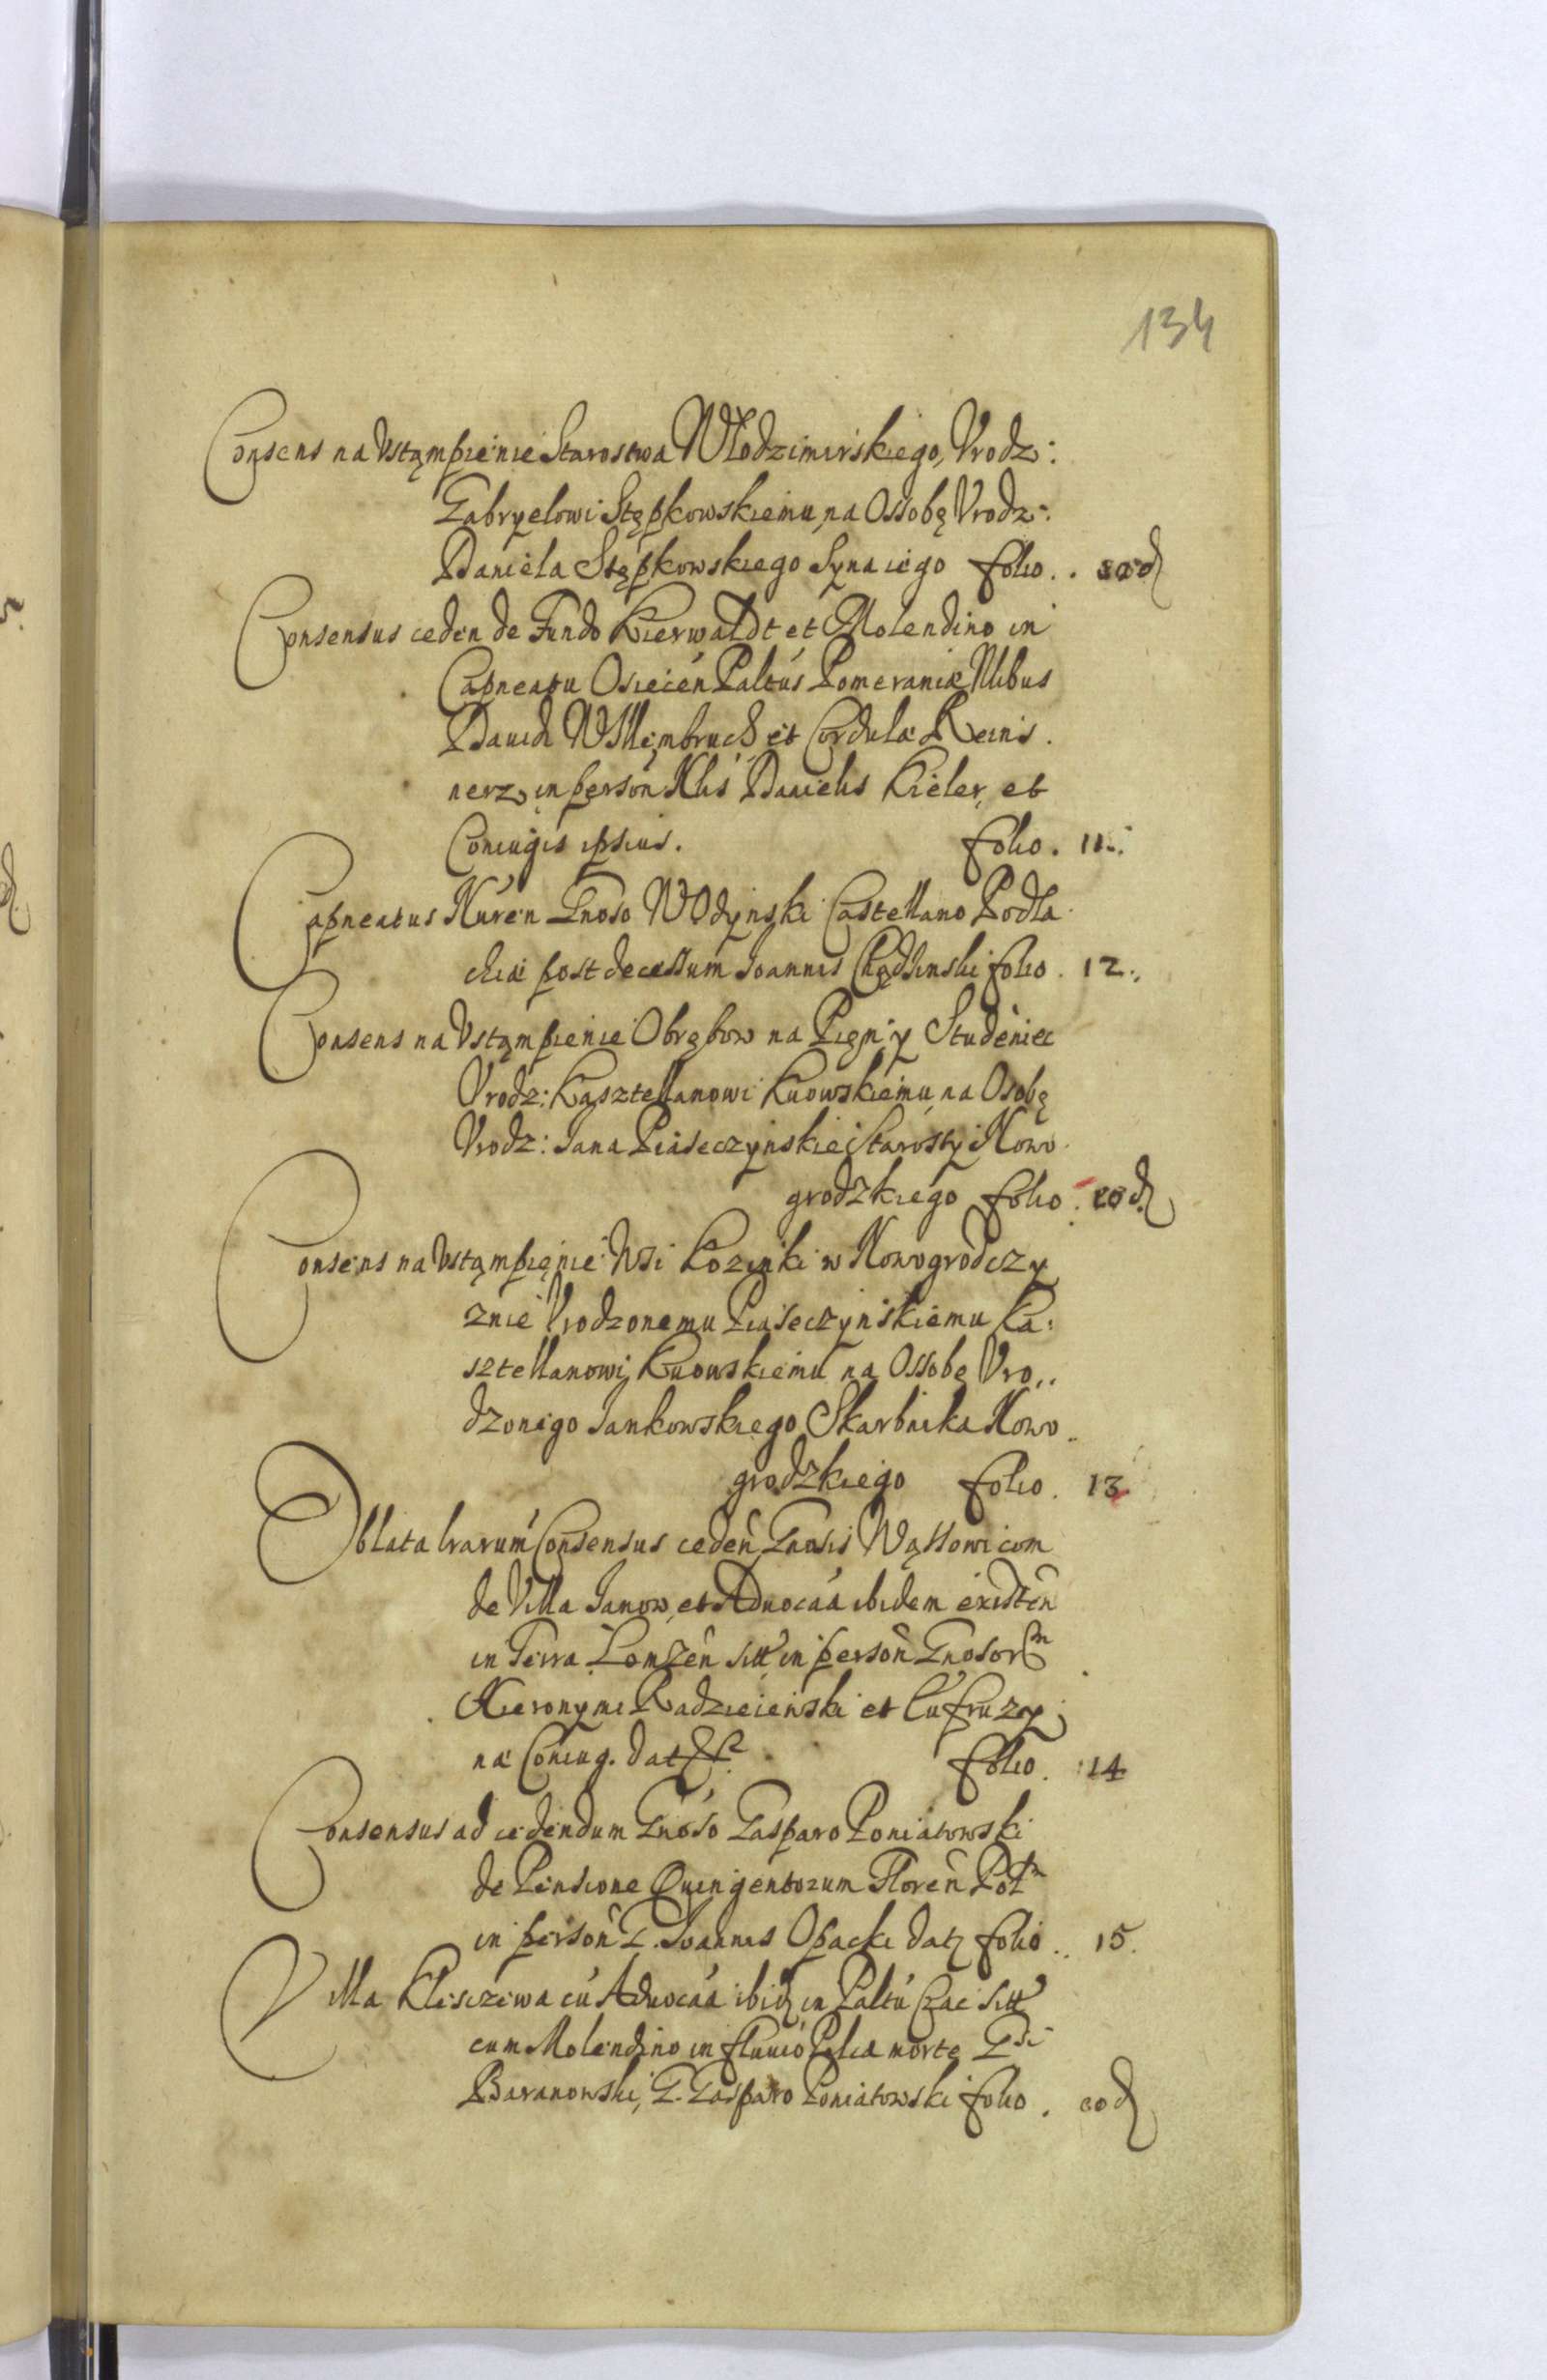 134
Consens na Vstąmpienie Starostwa Włodzimirskiego, Vrodz:
Gabryelowi Stępkowskiemu, na Ossobę Vrodz:
Daniela Stępkowskiego Syna iego folio . . eod
Consensus ceden de Fundo Kierwaldt et Molendino in
Capneatu Osiecen Paltus Pomeraniæ Nlibus
Dauidi Willembruch et Cordulæ Reins.
nerz, in person Nlis Danielis Kieler, et
Coniugis ipsius. folio . 11.
Capneatus Nuren Gnoso Wodynski Castellano Podla
chiæ post decessum Joannis Chądzinski folio . 12.
Consens na Vstąmpienie Obrębow na Pięn y Studeniec
Vrodz: Kasztellanowi Kuowskiemu, na Osobę
Vrodz: Jana Piaseczynskie Starosty Nowo
grodzkiego folio . eod
Consens na Vstąmpięnie Wsi Kozinki w Nowogrodczy
znie Vrodzonemu Piaseczynskiemu Ka:
sztellanowi Kuowskiemu na Ossobę Vro..
dzonego Jankowskiego Skarbnika Nowo
grodzkiego folio . 13
Oblata lrarum Consensus ceden Gnosis Wąssowicom
de Villa Janow, et Aduocaa ibidem existen
in Terra Lomzen sitt in person Gnosorm
Hieronymi Radzieienski et Eufruzy
næ Coniug. dat folio . 14
Consensus ad cedendum Gnoso Gasparo Poniatowski
de Pensione Quingentorum Floren Pol
in person G. Joannis Opacki dat folio . . 15.
Villa Klesczewa cu Aduocaa ibid in Paltu Rac sitt
cum Molendino in fluuio morte Gsi
Baranowski, G. Gasparo Poniatowski folio . eod